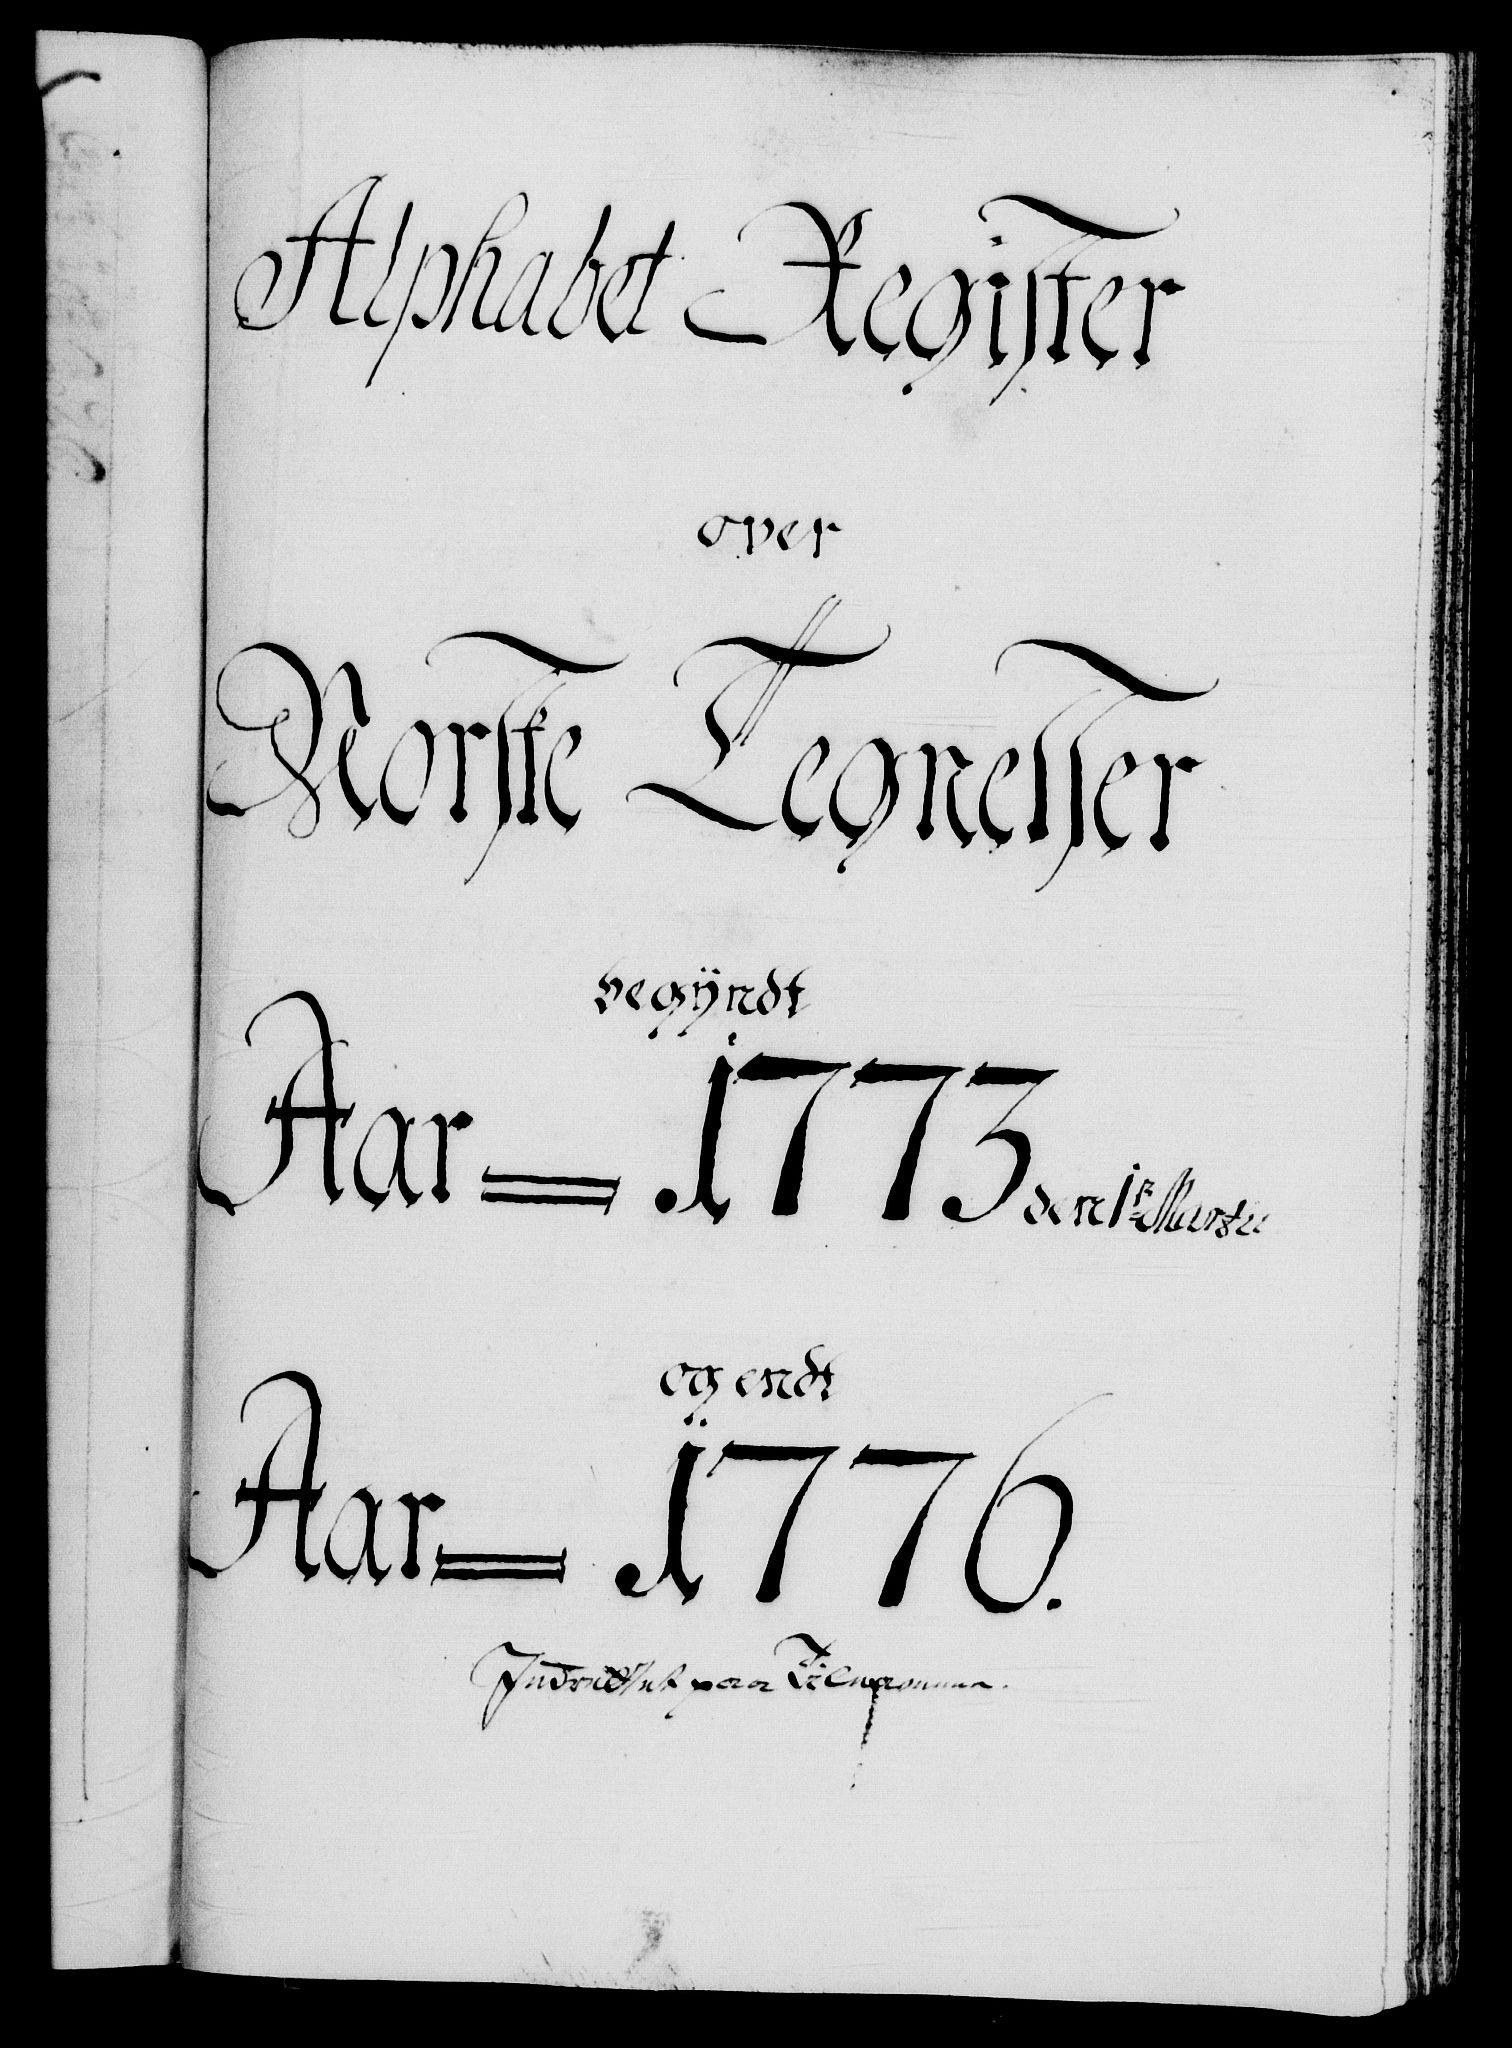 Alphabet Register
over
Norske Tegnelser
begÿndt
Aar = 1773 den 1ͭͤ Martii
og endt
Aar = 1776.
Indrettet paa Tilnavnene.